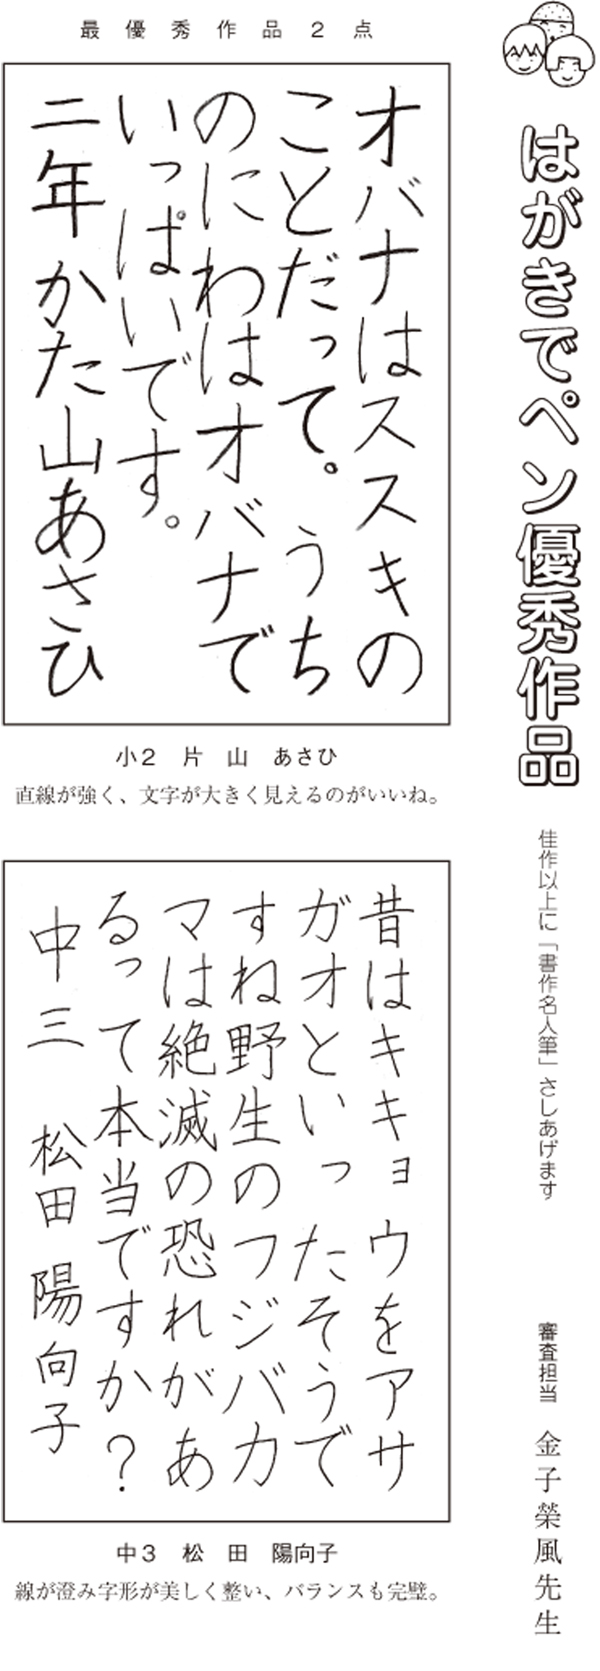 はがきでペン優秀作品
佳作以上に「書作名人筆」さしあげます
審査担当　金子榮風先生
最優秀作品２点
オバナはススキの
ことだって。うち
のにわはオバナで
いっぱいです。
二年かた山あさひ
小２　片　山　あさひ
直線が強く、文字が大きく見えるのがいいね。
昔はキキョウをアサ
ガオといったそうで
すね野生のフジバカ
マは絶滅の恐れがあ
るって本当ですか？
中三　松田陽向子
中３　松　田　陽向子
線が澄み字形が美しく整い、バランスも完璧。